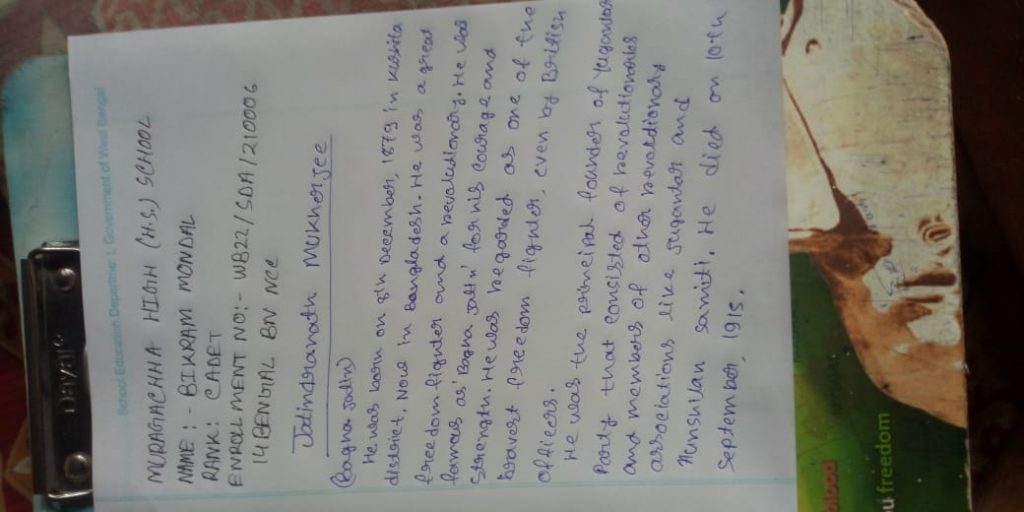 School Education Department, Government of West Bengal
MURAGACHHA HIGH (H.S.) SCHOOL
NAME :- BIKRAM MONDAL
RANK: CADET
ENROLLMENT NO:- WB22/SDA/210006
14 BENGAL BN NCC
Jatindranath Mukherjee
(Bagha Jatin)
He was born on 8th December, 1879 in Kushtia
district. Now in Bangladesh. He was a great
freedom fighter and a revolutionary. He was
famous as 'Bagha Jatin' for his courage and
strength. He was regarded as one of the
bravest freedom fighter, even by British
officers.
He was the principal founder of Yugantar
Party that consisted of revolutionaries
and members of other revolutionary
associations like Jugantar and
Anushilan samiti. He died on 10th
September, 1915.
blood
u freedom